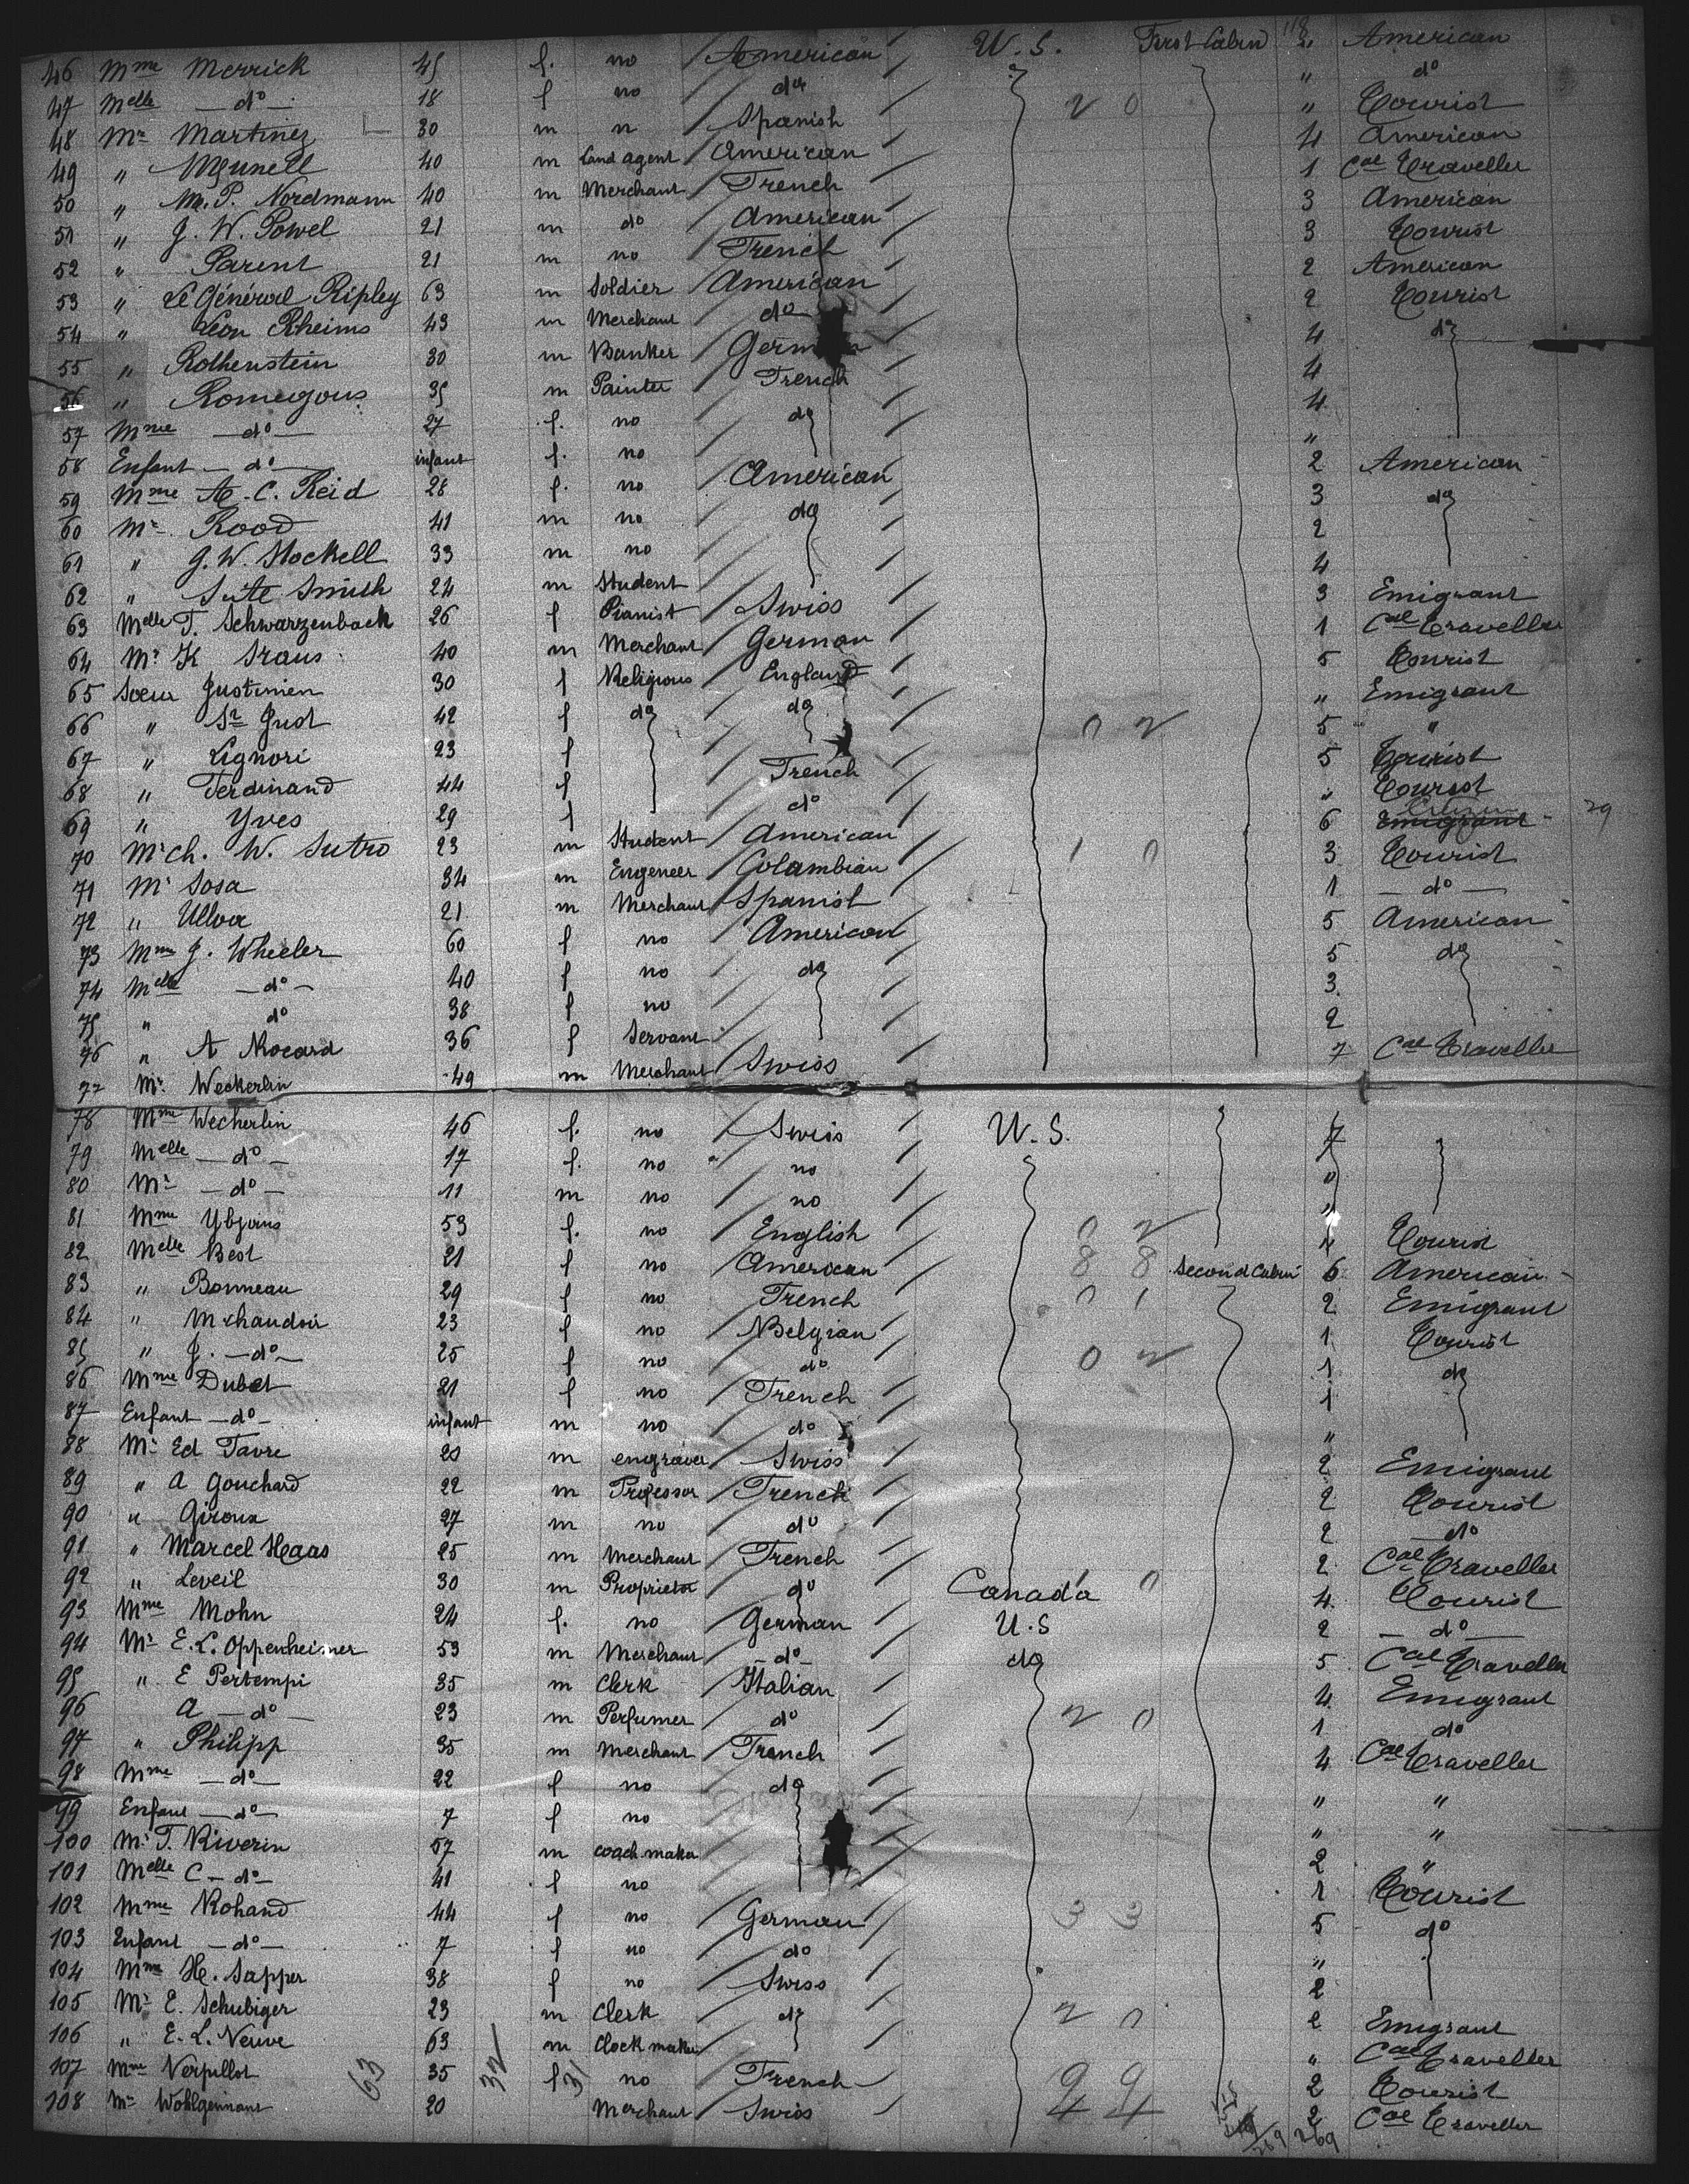 118
46 Mme Merrick 45 f. no American U.S. First Cabin 2 American
47 Melle — do — 18 f no do " do
48 Mr Martinez 30 m n Spanish 2 0 " Tourist
49 " 40 m Land agent American 4 American
50 " M. P. Nordmann 40 m Merchant French 1 Cal Traveller
51 " G. W. Powel 21 m do American 3 American
52 " Parent 21 m no French 3 Tourist
53 " Le Général Ripley 63 m Soldier American 2 American
54 " Leon Rheims 43 m Merchant do 2 Tourist
55 " Rothenstein 30 m Banker German 4 do
56 " Romegous 35 m Painter French 4
57 Mme — do — 27 f. no do 4
58 Enfant — do — infant f. no "
59 Mme A. C. Reid 28 f. no American 2 American
60 Mr Rood 41 m no do 3 do
61 " G. W. Stockell 33 m no 2
62 " Sute Smith 24 m Student 4
63 Melle F. Schwarzenbach 26 f Pianist Swiss 3 Emigrant
64 Mr K Straus 40 m Merchant German 1 Cal Traveller
65 Soeur Justinien 30 f Religious England 5 Tourist
66 " St Just 42 f do do " Emigrant
67 " Lignori 23 f 0 2 5 "
68 " Ferdinand 44 f French 5 Tourist
69 " Yves 29 f do " Tourist
70 Mr Ch. W. Sutro 23 m Student American 6 Emigrant Citizen 29
71 Mr Sosa 34 m Engeneer Colambian 1 0 3 Tourist
72 " Ulloa 21 m Merchant Spanish 1 — do —
73 Mme J. Wheeler 60 f no American 5 American
74 Melle — do — 40 f no do 5 do
75 " do 38 f no 3.
76 " A Nocard 36 f Servant 2
77 Mr Weckerlin 49 m Merchant Swiss 7 Cal Traveller
78 Mme Weckerlin 46 f. no Swiss U.S. 7
79 Melle — do — 17 f. no no "
80 Mr — do — 11 m no no "
81 Mme 53 f. no English 0 2 4 Tourist
82 Melle Best 21 f no American 8 8 Second Cabin 6 American
83 " Bonneau 29 f no French 0 1 2 Emigrant
84 " M chaudoir 23 f no Belgian 1 Tourist
85 " J. — do — 25 f no do 0 2 1 do
86 Mme Dubet 21 f no French 1
87 Enfant — do — infant m no do "
88 Mr Ed Favre 20 m engraver Swiss 2 Emigrant
89 " A Gouchard 22 m Professor French 2 Tourist
90 " Giroux 27 m no do 2 — do
91 " Marcel Haas 25 m Merchant French 2 Cal Traveller
92 " Leveil 30 m Proprietor do Canada 1 0 4 Tourist
93 Mme Mohn 24 f. no German U.S 2 — do —
94 Mr E. L. Oppenheimer 53 m Merchant — do — do 5 Cal Traveller
95 " E Pertempi 35 m Clerk Italian 4 Emigrant
96 A — do — 23 m Perfumer do 2 0 1 do
97 " Philipp 35 m Merchant French 4 Cal Traveller
98 Mme — do — 22 f no do " "
99 Enfant — do — 7 f no " "
100 Mr T. Riverin 57 m coach maker 2 "
101 Melle C — do — 41 f no 1 Tourist
102 Mme Rohand 44 f no German 3 3 5 do
103 Enfant — do — 7 f no do "
104 Mme H. Sapper 38 f no Swiss 2
105 Mr E. Schubiger 23 m Clerk do 2 0 2 Emigrant
106 " E. L. Neuve 63 m Clock maker " Cal Traveller
107 Mme Verpillot 35 f no French 9 9 2 Tourist
108 Mr Wohlgemant 20 Merchant Swiss 4 4 2 Cal Traveller
63 32 31 269 269